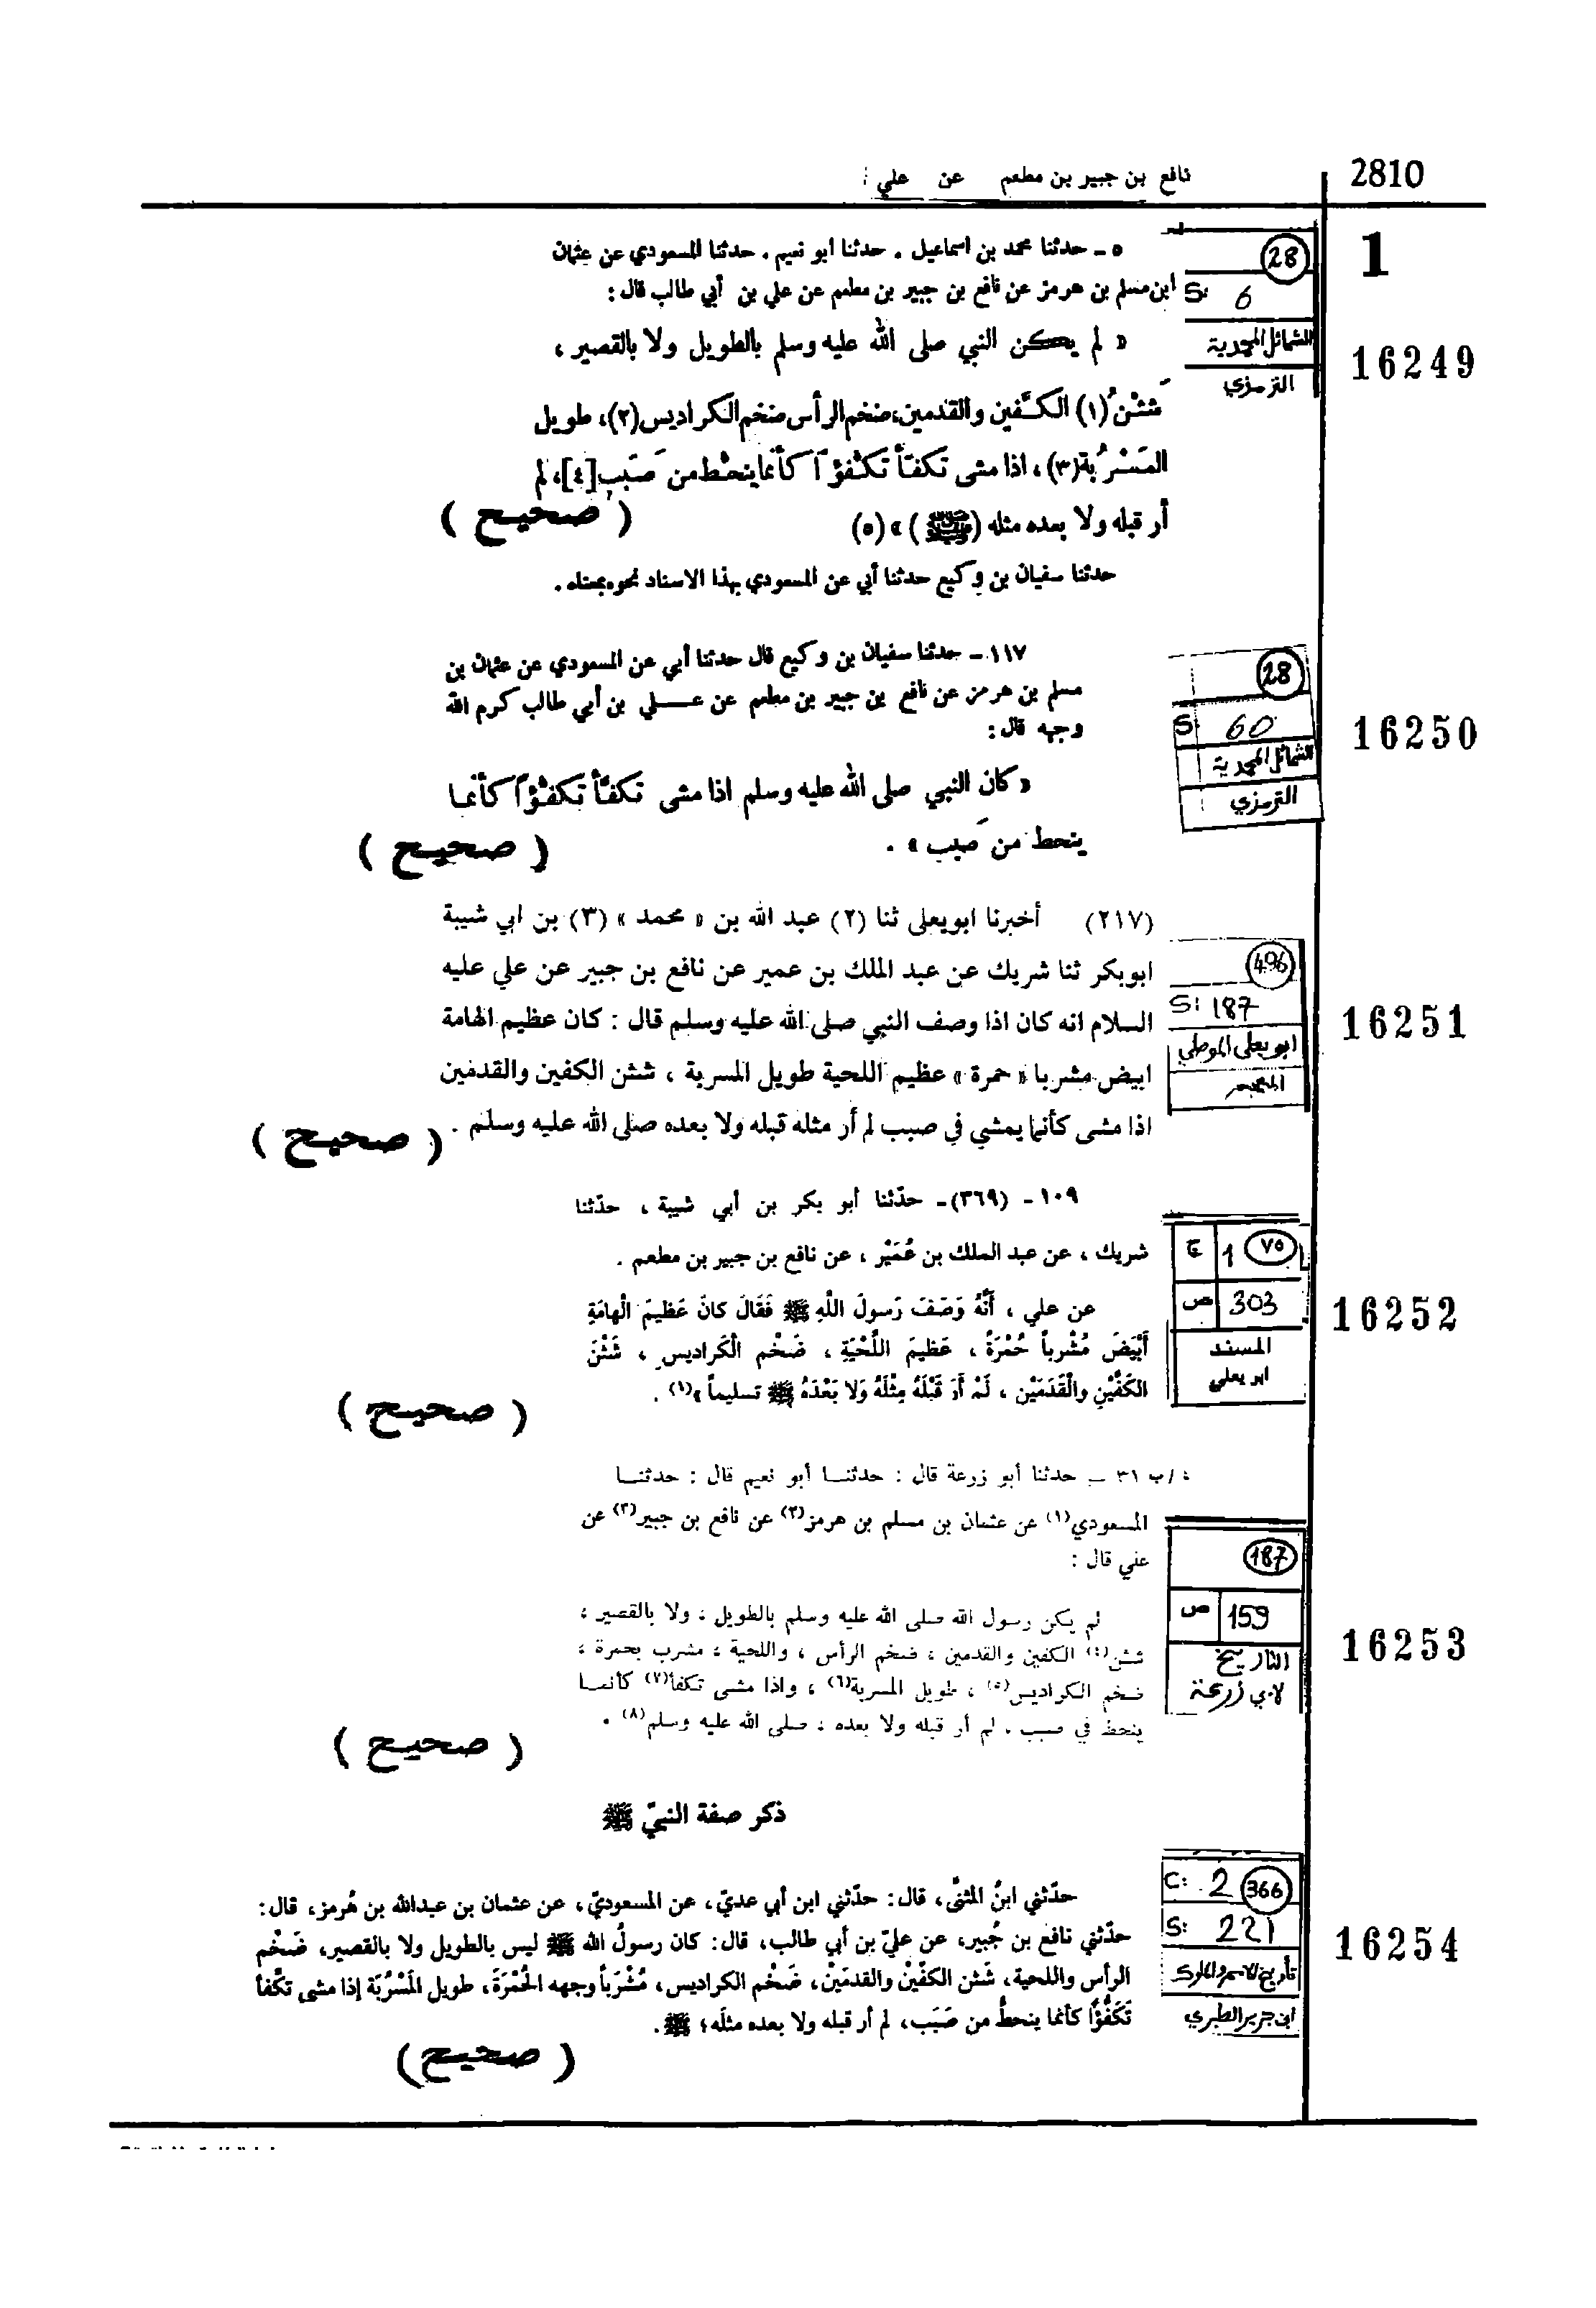 2810
نافع بن جبير بن مطعم عن علي
1
28
S: 6
الشمائل المحمدية
الترمذي
16249
٥ ـ حدثنا محمد بن اسماعيل . حدثنا ابو نعيم . حدثنا المسعودي عن عثمان
ابن مسلم بن هرمز عن نافع بن جبير بن مطعم عن علي بن أبي طالب قال :
« لم يكن النبي صلى الله عليه وسلم بالطويل ولا بالقصير ،
شَثْنُ (١) الكفَّين والقدمين، ضخم الرأس ضخم الكراديس (٢)، طويل
المَسْرُبة (٣) ، اذا مشى تَكَفَّأَ تَكَفُّؤاً كأنما ينحط من صَبَب [٤]، لم
أر قبله ولا بعده مثله (ﷺ) » (٥)
( صحيح )
حدثنا سفيان بن وكيع حدثنا أبي عن المسعودي بهذا الاسناد نحوه بمعناه .
28
S: 60
الشمائل المحمدية
الترمذي
16250
١١٧ ـ حدثنا سفيان بن وكيع قال حدثنا أبي عن المسعودي عن عثمان بن
مسلم بن هرمز عن نافع بن جبير بن مطعم عن عـــلي بن أبي طالب كرم الله
وجهه قال :
« كان النبي صلى الله عليه وسلم اذا مشى تَكَفَّأَ تَكَفُّؤاً كأنما
ينحط من صَبَب » .
( صحيح )
496
S: 187
ابو يعلى الموصلي
المعجم
16251
(٢١٧) أخبرنا ابويعلى ثنا (٢) عبد الله بن « محمد » (٣) بن ابي شيبة
ابوبكر ثنا شريك عن عبد الملك بن عمير عن نافع بن جبير عن علي عليه
السلام انه كان اذا وصف النبي صلى الله عليه وسلم قال : كان عظيم الهامة
ابيض مشربا « حمرة » عظيم اللحية طويل المسربة ، شثن الكفين والقدمين
اذا مشى كأنما يمشي في صبب لم أر مثله قبله ولا بعده صلى الله عليه وسلم .
( صحيح )
ج 1 ٧٥
ص 303
المسند
ابو يعلى
16252
١٠٩ ـ (٣٦٩) ـ حدّثنا أبو بكر بن أبي شيبة ، حدّثنا
شريك ، عن عبد الملك بن عُمَيْر ، عن نافع بن جبير بن مطعم .
عن علي ، أَنَّهُ وَصَفَ رَسولَ اللَّهِ ﷺ فَقَالَ كانَ عَظيمَ الْهامَةِ
أَبْيَضَ مُشْرباً حُمْرَةً ، عَظيمَ اللِّحْيَةِ ، ضَخْم الْكَراديسِ ، شَثْنَ
الكَفَّيْنِ والْقَدَمَيْنِ ، لَمْ أَرَ قَبْلَهُ مِثْلَهُ وَلا بَعْدَهُ ﷺ تسليماً »(١) .
( صحيح )
187
ص 159
التاريخ
لابي زرعة
16253
٤/ب ٣١ ـ حدثنا أبو زرعة قال : حدثنــا أبو نعيم قال : حدثنــا
المسعودي(١) عن عثمان بن مسلم بن هرمز(٢) عن نافع بن جبير(٣) عن
علي قال :
لم يكن رسول الله صلى الله عليه وسلم بالطويل ، ولا بالقصير ،
شثن(٤) الكفين والقدمين ، ضخم الرأس ، واللحية ، مشرب بحمرة ،
ضخم الكراديس(٥) ، طويل المسربة(٦) ، واذا مشى تكفأ(٧) كأنمــا
ينحط في صبب . لم أر قبله ولا بعده ، صلى الله عليه وسلم(٨) .
( صحيح )
ذكر صفة النبيّ ﷺ
C: 2 366
S: 221
تأريخ الامم والملوك
ابن جرير الطبري
16254
حدّثني ابنُ المثنَّى، قال: حدّثني ابن أبي عديّ، عن المسعوديّ، عن عثمان بن عبدالله بن هُرمز، قال:
حدّثني نافع بن جُبير، عن عليّ بن أبي طالب، قال: كان رسولُ الله ﷺ ليس بالطويل ولا بالقصير، ضَخْم
الرأس واللحية، شَثن الكفّيْن والقدمَيْن، ضَخْم الكراديس، مُشْرَباً وجهه الحُمْرَةَ، طويل المَسْرُبَة إذا مشى تكَفَّأ
تَكَفُّؤًا كأنما ينحطُّ من صَبَب، لم أر قبله ولا بعده مثلَه؛ ﷺ.
( صحيح )